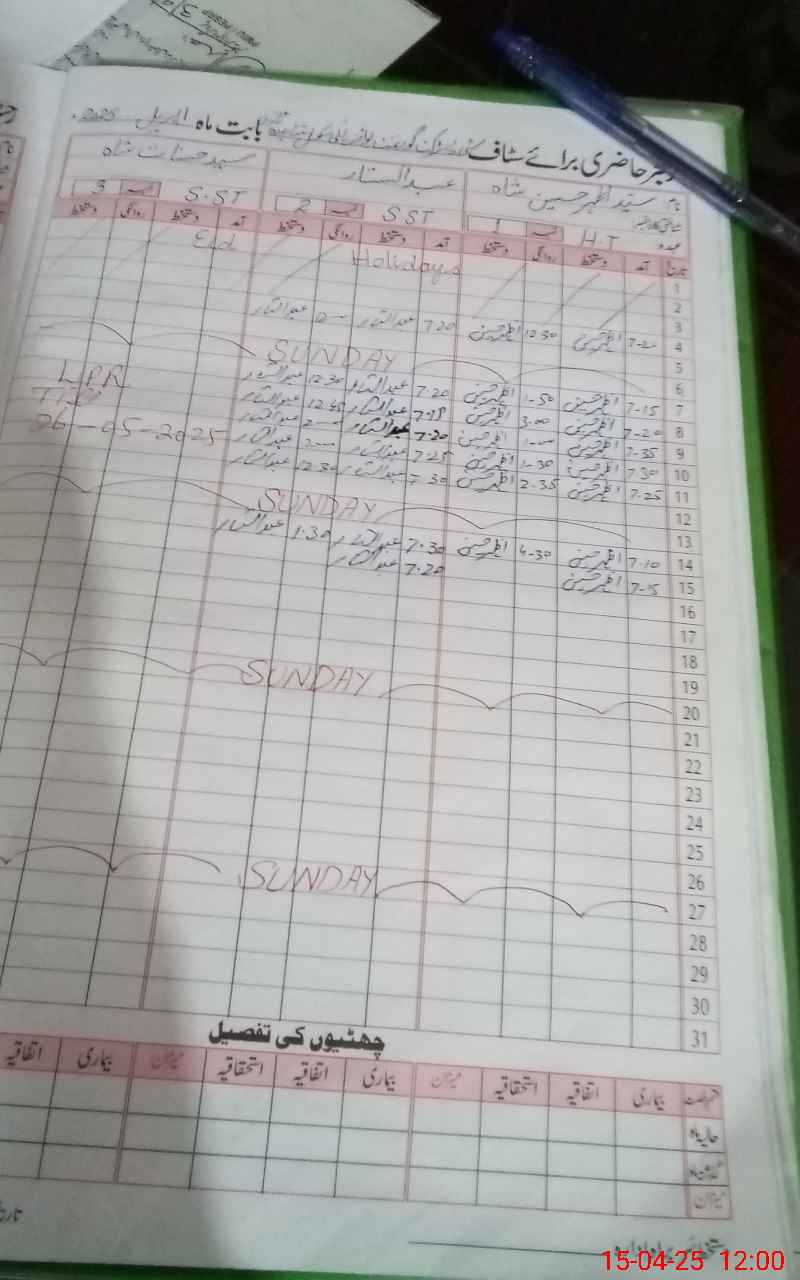 رجسٹر حاضری برائے سٹاف گورنمنٹ بابت ماہ اپریل 2025
نام سید اظہر حسین شاہ عبدالستار سید حسنات شاہ
عہدہ H.T 1 S.ST 2 S.ST 3
تاریخ آمد دستخط روانگی دستخط آمد دستخط روانگی دستخط آمد دستخط روانگی دستخط
1 Holidays Eid
2
3
4 7-20 اظہر حسین 12-30 اظہر حسین 7.20 عبدالستار عبدالستار
5
6 SUNDAY
7 7-15 اظہر حسین 1-50 اظہر حسین 7.20 عبدالستار 12.30 عبدالستار
8 7-20 اظہر حسین 3.00 اظہر حسین 7.18 عبدالستار 12.45 عبدالستار
9 7-35 اظہر حسین اظہر حسین 7.20 عبدالستار عبدالستار
10 7.30 اظہر حسین 1-30 اظہر حسین 7.25 عبدالستار عبدالستار
11 7-25 اظہر حسین 2.35 اظہر حسین 7.30 عبدالستار 12.30 عبدالستار
LPR
Till
26-05-2025
12
13 SUNDAY
14 7-10 اظہر حسین 4-30 اظہر حسین 7.30 عبدالستار 1.30 عبدالستار
15 7-15 اظہر حسین 7.20 عبدالستار
16
17
18
19
20 SUNDAY
21
22
23
24
25
26
27 SUNDAY
28
29
30
31
چھٹیوں کی تفصیل
رخصت بیماری اتفاقیہ استحقاقیہ میزان بیماری اتفاقیہ استحقاقیہ میزان بیماری اتفاقیہ
حالیہ ماہ
گذشتہ ماہ
میزان
دستخط سربراہ ادارہ
15-04-25 12:00